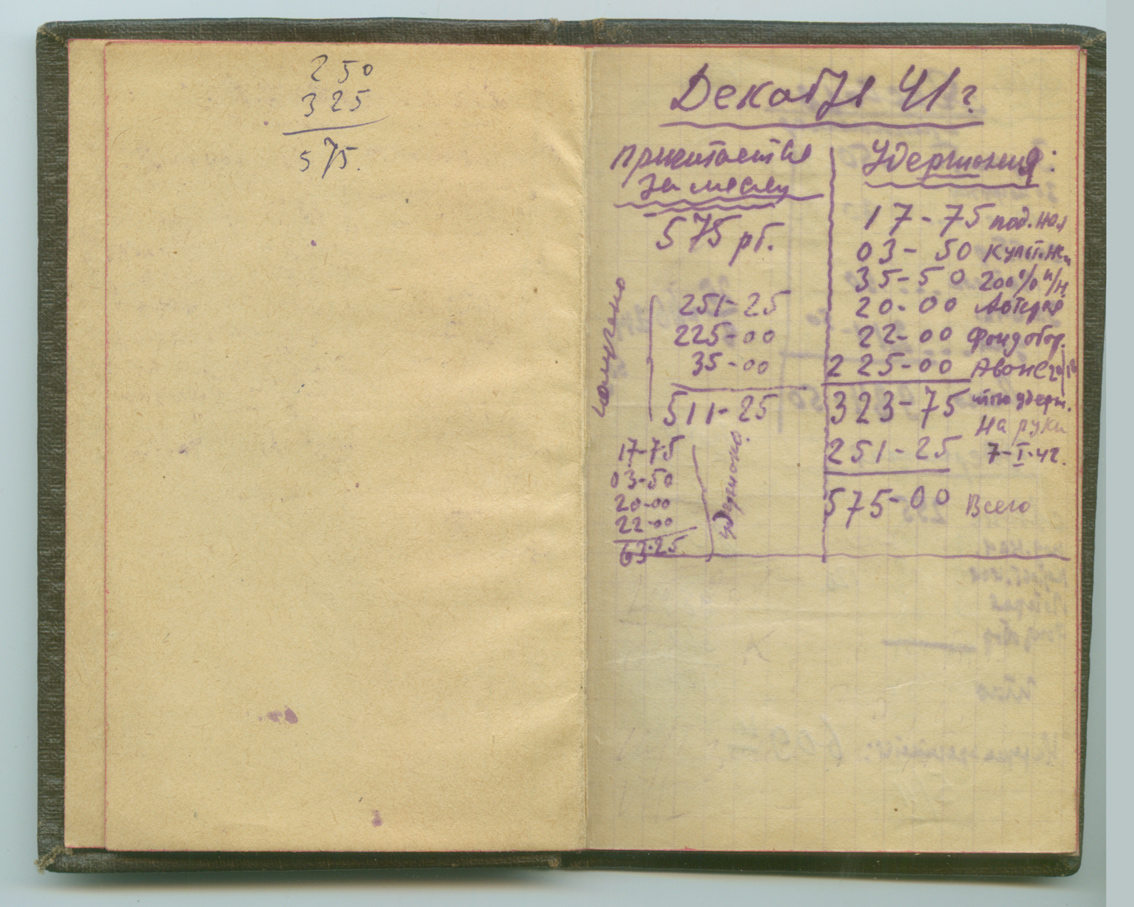 250
325
575.
Декабрь 41 г.
Причитается
за месяц
575 рб.
получено
251-25
225-00
35-00
511-25
17-75
03-50
20-00
22-00
63-25
удержано.
Удержания:
17-75 под. нал
03-50 культ.
35-50 200% п/н.
20-00 Лотерея
22-00 Фонд обор.
225-00 Аванс
323-75 итого удерж.
На руки
251-25 7-I-42.
575-00 Всего